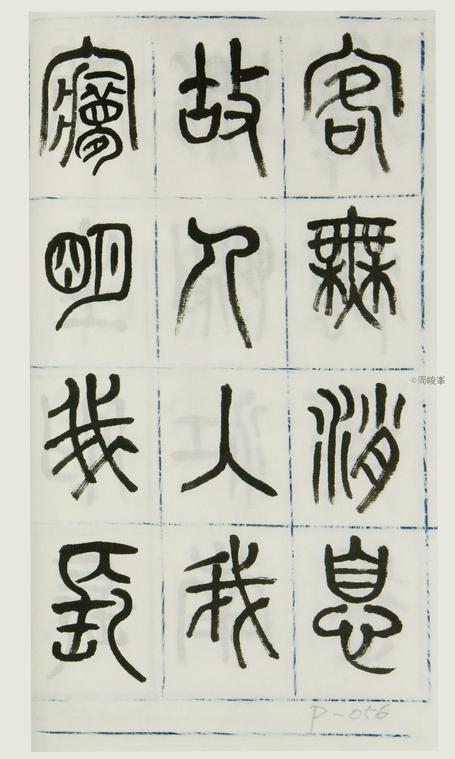 客無消息
故人入我
㝱明我長
©周峻峯
P-056